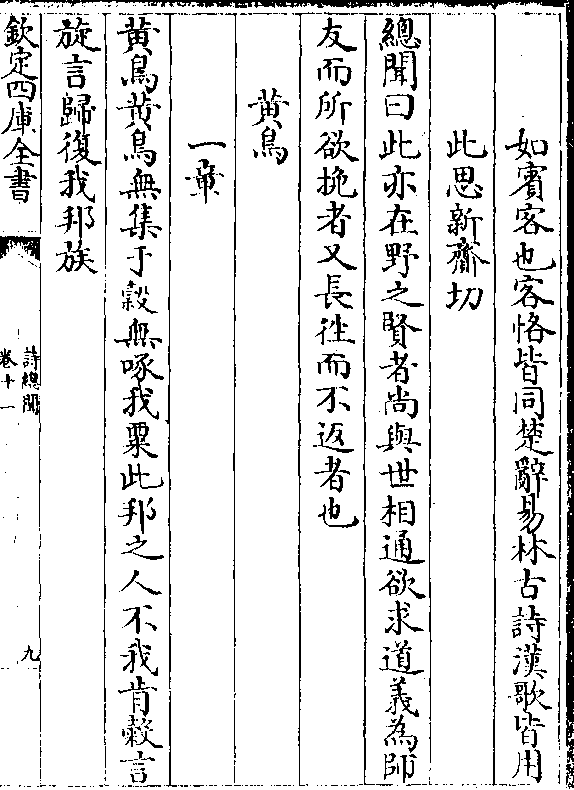 如賓客也客恪皆同楚辭易林古詩漢歌皆用
此思新齋切
總聞曰此亦在野之賢者尚與世相通欲求道義為師
友而所欲挽者又長往而不返者也
黄鳥
一章
黄鳥黄鳥無集于穀無啄我粟此邦之人不我肯穀言
旋言歸復我邦族
欽定四庫全書
詩總聞
卷十一
九